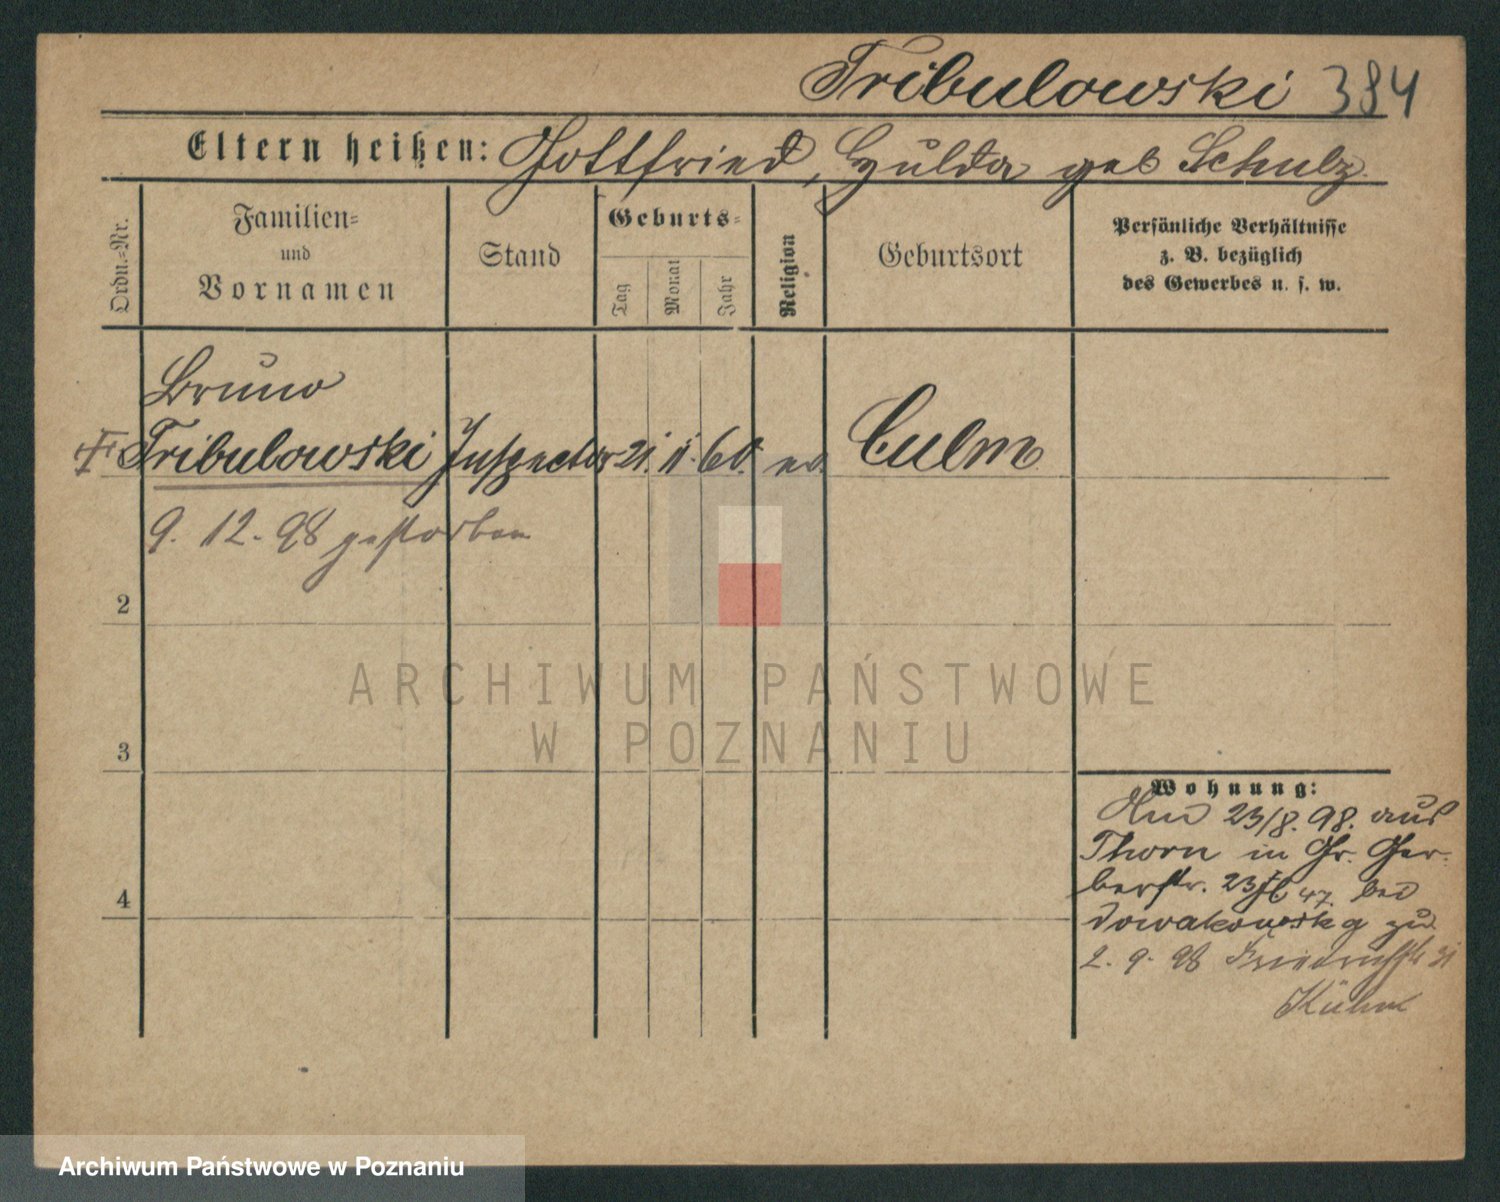 Tribulowski 384
Eltern heißen: Gottfried, Hulda geb Schulz
Ordn.-Nr.
Familien-
und
Vornamen
Stand
Geburts-
Tag
Monat
Jahr
Religion
Geburtsort
Persönliche Verhältnisse
z. B. bezüglich
des Gewerbes u. s. w.
Bruno
Tribulowski Inspector 21. 11. 60. ev. Culm
9. 12. 98 gestorben
2
3
4
ARCHIWUM PAŃSTWOWE
W POZNANIU
Wohnung:
23/8. 98. aus
Thorn in Gr. Ger-
berstr. 23 bei
zu
2. 9. 98 Friedrichstr 31
Kühn
Archiwum Państwowe w Poznaniu